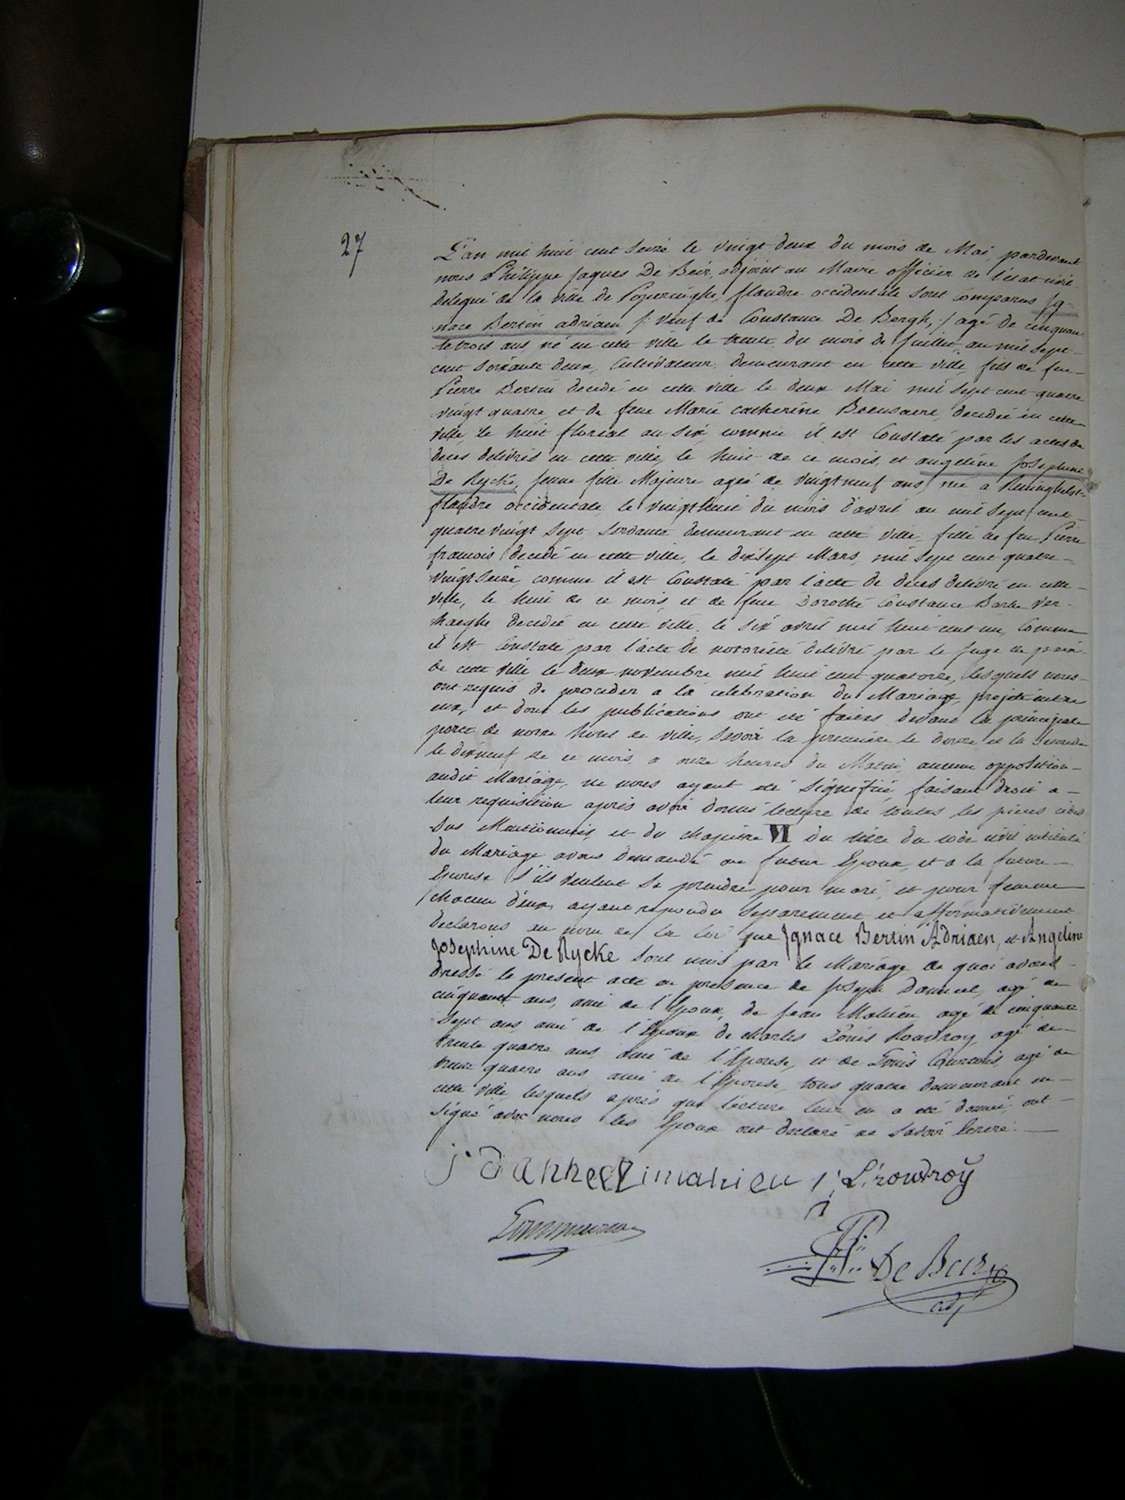 27
L'an mil huit cent seize le vingt deux du mois de Mai, pardevant
nous Philippe Jaques De Beir, adjoint au Maire officier de l'etat civil
delegué de la ville de Poperinghe, flandre occidentale sont comparus Ig-
nace Bertin adriaen /: Veuf de Constance De Bergh, :/ agé de cinquan-
te trois ans, né en cette ville le trente du mois de Juillet an mil sept
cent soixante deux, Cultivateur, demeurant en cette ville, fils de feu
Pierre Bertin decedé en cette ville le deux Mai mil sept cent quatre
vingt quatre et de feue Marie Catherine decedée en cette
ville le huit floreal an six, comme il est Constaté par les actes de
deces delivrés en cette ville, le huit de ce mois, et angeline Josephine
De Rycke, jeune fille Majeure agée de vingt neuf ans née a Reninghelst
flandre occidentale le vingt huit du mois d'avril an mil sept cent
quatre vingt sept demeurant en cette ville, fille de feu Pierre
francois decedé en cette ville, le dix sept Mars, mil sept cent quatre
vingt seize comme il est Constaté par l'acte de deces delivré en cette
ville, le huit de ce mois, et de feue Dorothé Constance Barbe Ver-
haeghe decedée en cette ville, le six avril mil huit cent un, Comme
il est Constaté par l'acte de notorieté delivré par le juge de paix
de cette ville le deux novembre mil huit cent quatorze, lesquels nous
ont requis de proceder a la celebration du Mariage projeté entre
eux, et dont les publications ont été faites devant la principale
porte de notre hotel de ville, Savoir la premiere le douze et la Seconde
le dixneuf de ce mois a onze heures du Matin, aucune opposition
audit Mariage, ne nous ayant été signifiée, faisant droit a
leur requisition après avoir donné lecture de toutes les pieces ci
dus Mentionnés et du chapitre VI du titre du code civil intitulé
du Mariage avons demandé au futur Epoux, et a la future
Epouse s'ils veulent se prendre pour mari et pour femme
chacun d'eux ayant repondu separement et affirmativement
declarons au nom de la loi que Ignace Bertin Adriaen, et Angeline
Josephine De Rycke sont unis par le Mariage de quoi avons
dressé le present acte en presence de Joseph Dannel, agé de
cinquante ans, ami de l'Epoux, de Jean Mahieu agé de cinquante
sept ans ami de l'Epoux de Charles Louis Rouvroy agé de
trente quatre ans, ami de l'Epouse, et de Louis agé de
trente quatre ans ami de l'Epouse, tous quatre demeurant en
cette ville lesquels après que lecture leur en a été donné, ont
signé avec nous les Epoux ont declaré ne savoir
J. Dannel J mahieu L: rouvroy
De Beir
adj